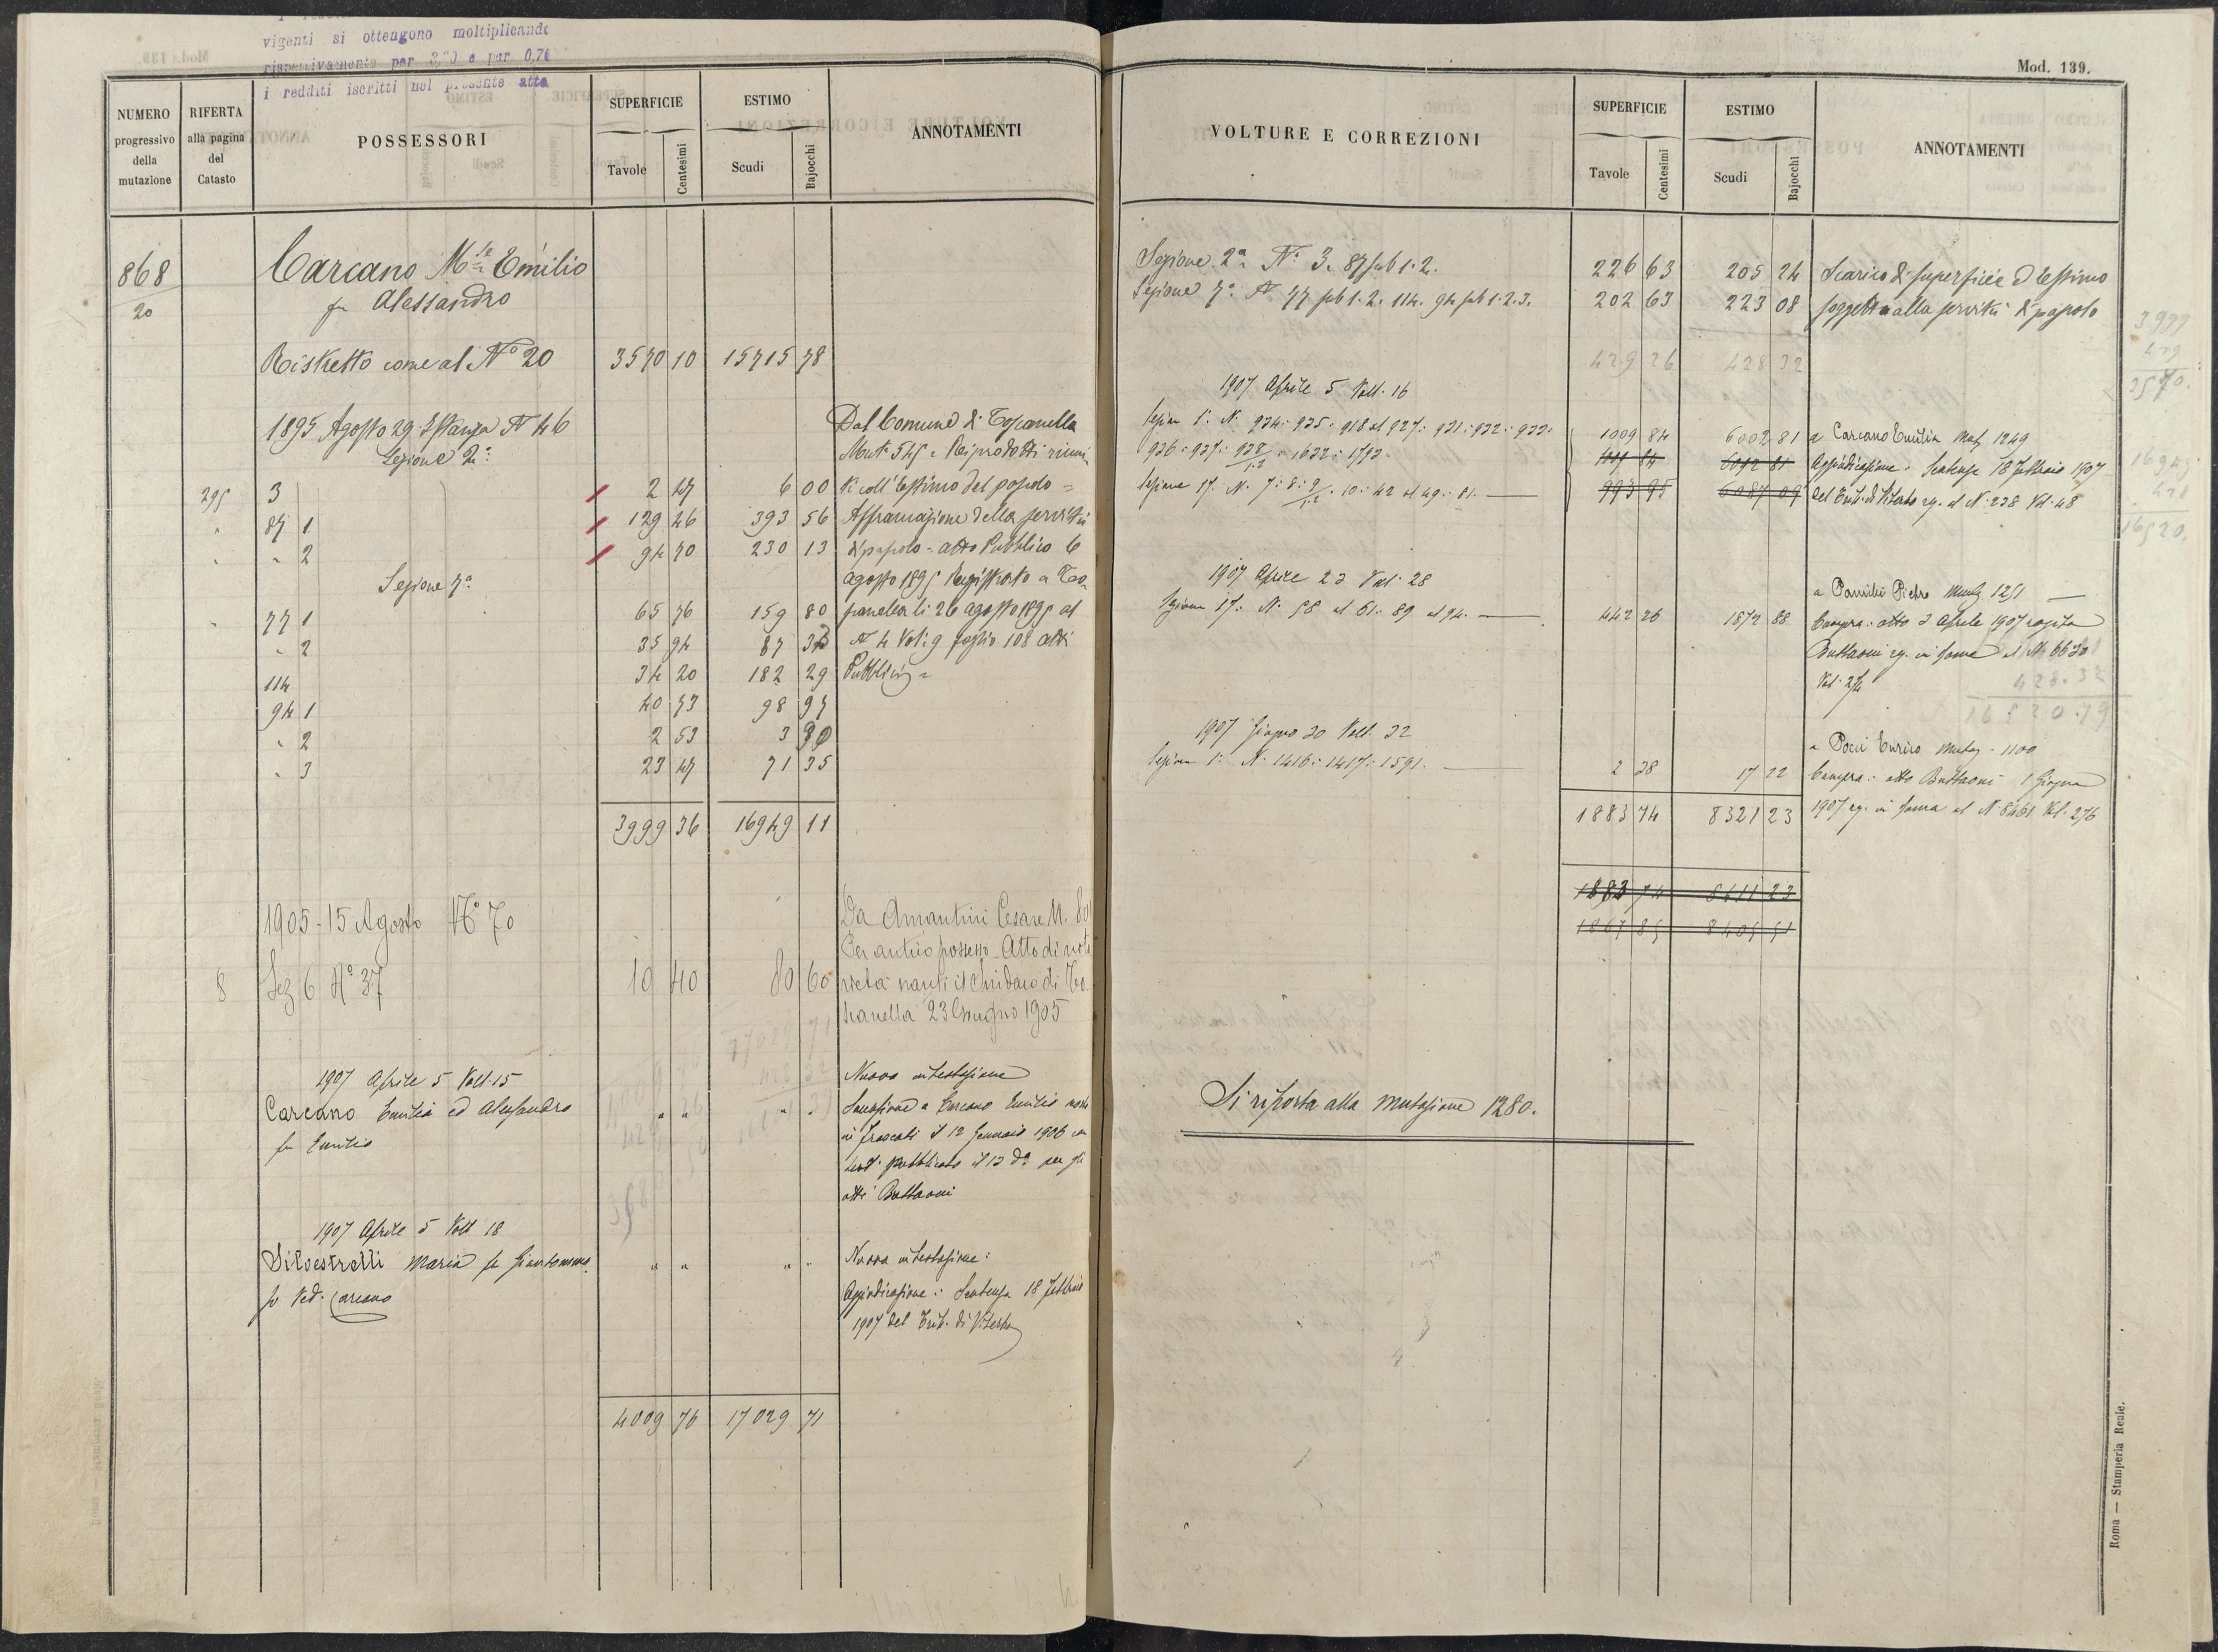 vigenti si ottengono moltiplicando
rispettivamente per e per 0,70
i redditi iscritti nel presente atto
NUMERO progressivo della mutazione
RIFERTA alla pagina del Catasto
POSSESSORI
SUPERFICIE
Tavole Centesimi
ESTIMO
Scudi Bajocchi
ANNOTAMENTI
868 Carcano M.se Emilio
20 fu Alessandro
Ristretto come al Nº 20 3570 10 15715 78
1895 Agosto 29 Istanza Nº 46 Dal Comune di Toscanella
Sezione 2ª Mut.e 545 = Reiprodotti riuni
295 3 2 47 6 00 ti coll'Estimo del pascolo =
" 87 1 129 46 393 56 Affrancazione della servitù
" " 2 94 70 230 13 di pascolo = atto Pubblico 6
Sezione 7ª agosto 1895 Registrato a Tos
" 77 1 65 76 159 80 canella li 26 agosto 1895 al
" 2 35 94 87 Nº 4 Vol: 9 foglio 108 atti
114 34 20 182 29 Pubblici =
94 1 40 73 98 97
" 2 2 53 3
" 3 23 47 71 35
3999 36 16949 11
1905 - 15 Agosto Nº 70 Da Amantini Cesare M. 801
Per antico possesso - Atto di noto
8 Sez 6 Nº 37 10 40 80 60 rietà nanti il Sindaco di To
scanella 23 Giugno 1905
1907 Aprile 5 Volt. 15 Nuova intestazione
Carcano Emilia ed Alessandro " " " " Successione a Carcano Emilio morto
fu Emilio in Frascati il 12 Gennaio 1906 con
test. pubblicato il 13 dº per gli
atti Buttaoni
1907 Aprile 5 Volt 18
Silvestrelli Maria fu Giantommaso " " " " Nuova intestazione:
Ved. Carcano Aggiudicazione: Sentenza 18 Febbraio
1907 del Trib. di Viterbo
4009 76 17029 71
Mod. 139.
VOLTURE E CORREZIONI
SUPERFICIE
Tavole Centesimi
ESTIMO
Scudi Bajocchi
ANNOTAMENTI
Sezione 2ª Nº 3. 87 sub 1. 2. 226 63 205 24 Scarico di superficie ed Estimo
Sezione 7ª Nº 77 sub 1. 2. 114. 94 sub 1. 2. 3. 202 63 223 08 soggetta alla servitù di pascolo
3999
429 26 428 32 429
3570.
1907 Aprile 5 Volt. 16
Sezione 1ª N. 924: 925: 918 al 927: 931: 932: 933: 1009 84 6002 81 a Carcano Emilia Mut. 1249
936: 937: 938/1.2: 1632: 1793: Aggiudicazione. Sentenza 18 Febbraio 1907
Sezione 17ª N. 7: 8: 9/1.2: 10: 42 al 49: 81. 993 95 6087 09 del Trib. di Viterbo rg. al N. 238 Vol. 48
16520.
1907 Aprile 23 Vol. 28 a Pietro Mutaz 1251
Sezione 17ª N. 58 al 61: 89 al 94. 442 26 1872 88 Compra: atto 3 Aprile 1907 rogito
Buttaoni rg. in Roma al N. 6630
Vol. 274 428.32
16520.79
1907 Giugno 30 Volt. 32 a Pocci Enrico Mutaz. 1100
Sezione 1ª N. 1416: 1417: 1591. 2 38 17 22 Compra: atto Buttaoni 1 Giugno
1883 74 8321 23 1907 rg. in Roma al N. 8461 Vol. 276
1883 74 8411 23
1867 85 8405 51
Si riporta alla mutazione 1280.
Roma — Stamperia Reale.